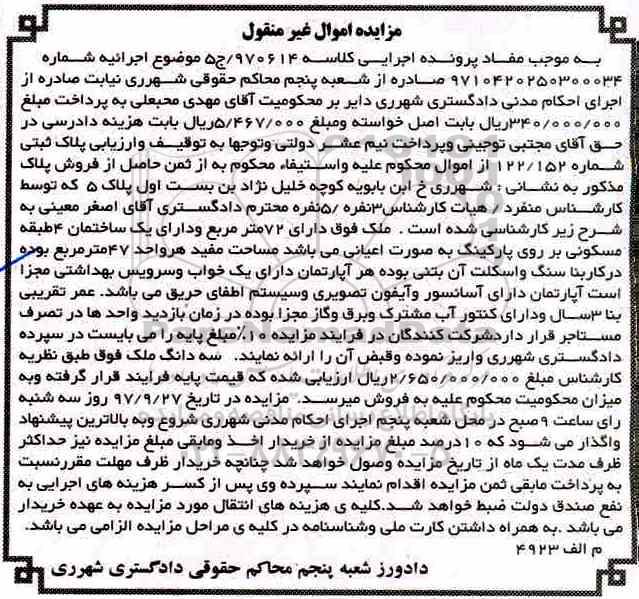 مزایده اموال غیر منقول
به موجب مفاد پرونده اجرایی کلاسه ۹۷۰۶۱۴/ج۵ موضوع اجرائیه شماره
۹۷۱۰۴۲۰۲۵۰۳۰۰۰۳۴ صادره از شعبه پنجم محاکم حقوقی شهرری نیابت صادره از
اجرای احکام مدنی دادگستری شهرری دایر بر محکومیت آقای مهدی محبعلی به پرداخت مبلغ
۳۴۰/۰۰۰/۰۰۰ریال بابت اصل خواسته ومبلغ ۵/۴۶۷/۰۰۰ریال بابت هزینه دادرسی در
حق آقای مجتبی توجینی وپرداخت نیم عشر دولتی وتوجها به توقیف وارزیابی پلاک ثبتی
شماره ۱۲۲/۱۵۲ از اموال محکوم علیه واستیفاء محکوم به از ثمن حاصل از فروش پلاک
مذکور به نشانی : شهرری خ ابن بابویه کوچه خلیل نژاد بن بست اول پلاک ۵ که توسط
کارشناس منفرد / هیات کارشناس۳نفره /۵نفره محترم دادگستری آقای اصغر معینی به
شرح زیر کارشناسی شده است . ملک فوق دارای ۷۲متر مربع ودارای یک ساختمان ۴طبقه
مسکونی بر روی پارکینگ به صورت اعیانی می باشد مساحت مفید هرواحد ۴۷مترمربع بوده
درکاربنا سنگ واسکلت آن بتنی بوده هر آپارتمان دارای یک خواب وسرویس بهداشتی مجزا
است آپارتمان دارای آسانسور وآیفون تصویری وسیستم اطفای حریق می باشد. عمر تقریبی
بنا ۳سال ودارای کنتور آب مشترک وبرق وگاز مجزا بوده در زمان بازدید واحد ها در تصرف
مستاجر قرار داردشرکت کنندگان در فرایند مزایده ۱۰٪مبلغ پایه را می بایست در سپرده
دادگستری شهرری واریز نموده وقبض آن را ارائه نمایند. سه دانگ ملک فوق طبق نظریه
کارشناس مبلغ ۲/۶۵۰/۰۰۰/۰۰۰ریال ارزیابی شده که قیمت پایه فرایند قرار گرفته وبه
میزان محکومیت محکوم علیه به فروش میرسد. مزایده در تاریخ ۹۷/۹/۲۷ روز سه شنبه
رای ساعت ۹صبح در محل شعبه پنجم اجرای احکام مدنی شهرری شروع وبه بالاترین پیشنهاد
واگذار می شود که ۱۰درصد مبلغ مزایده از خریدار اخذ ومابقی مبلغ مزایده نیز حداکثر
ظرف مدت یک ماه از تاریخ مزایده وصول خواهد شد چنانچه خریدار ظرف مهلت مقررنسبت
به پرداخت مابقی ثمن مزایده اقدام نمایند سپرده وی پس از کسر هزینه های اجرایی به
نفع صندق دولت ضبط خواهد شد.کلیه ی هزینه های انتقال مورد مزایده به عهده خریدار
می باشد .به همراه داشتن کارت ملی وشناسنامه در کلیه ی مراحل مزایده الزامی می باشد.
م الف ۴۹۲۳
دادورز شعبه پنجم محاکم حقوقی دادگستری شهرری